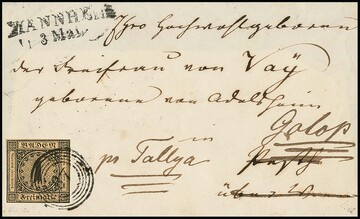 MANNHEIM
3 Mai
Ihro Hochwohlgeboren
der Freifrau von Vaÿ
geborene von Adelsheim
Golop
pr Tallya
Pesth
über W
BADEN
Freimarke